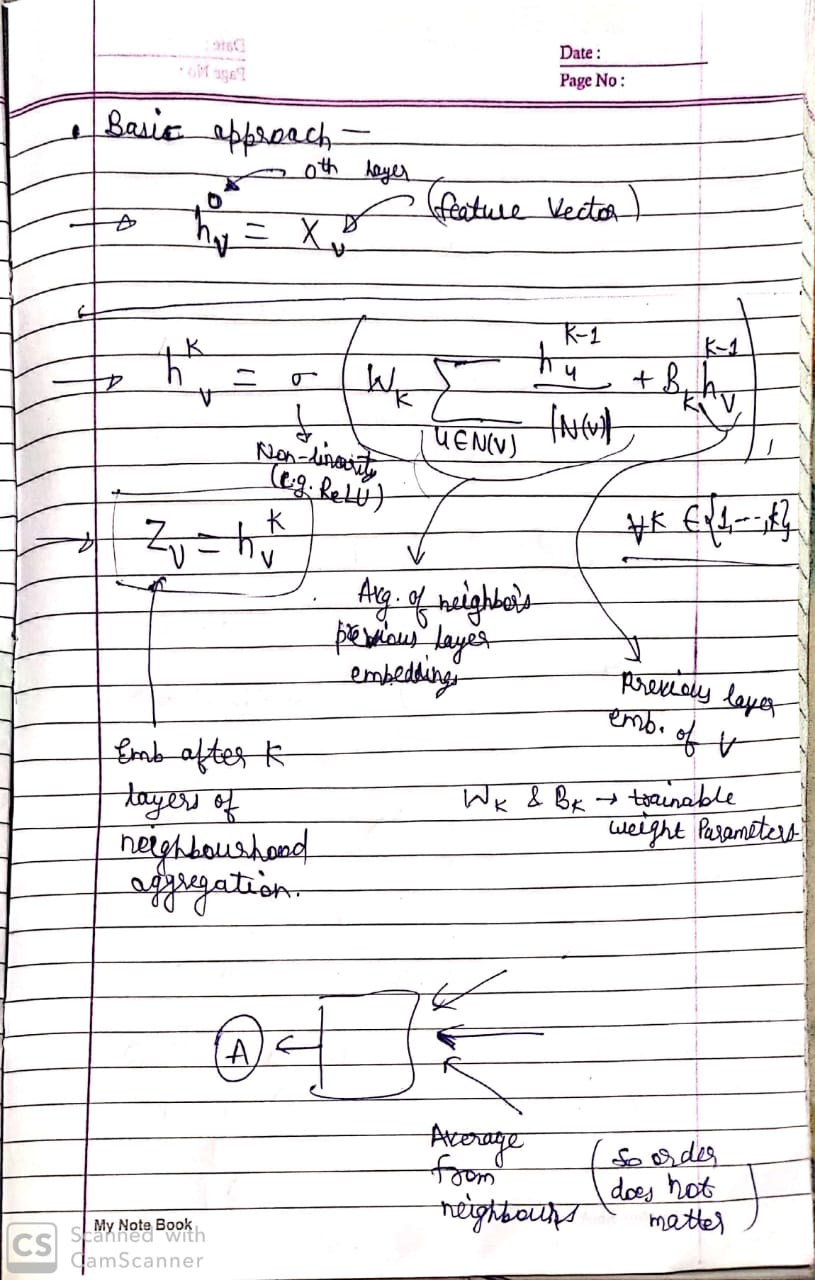 Date :
Page No :
• Basic approach —
0th layer
→ h_v^0 = X_v (feature Vector)
→ h_v^K = σ ( W_K Σ_{u∈N(v)} h_u^{K-1} / |N(v)| + B_K h_v^{K-1} ) ,
Non-linearity
(e.g. ReLU)
∀K ∈ {1,--,k}
→ Z_v = h_v^K
Avg. of neighbor's
previous layer
embeddings
Previous layer
emb. of v
Emb after K
layers of
neighbourhood
aggregation.
W_K & B_K → trainable
weight Parameters
A
Average
from
neighbours
(So order
does not
matter)
My Note Book
CS
Scanned with
CamScanner